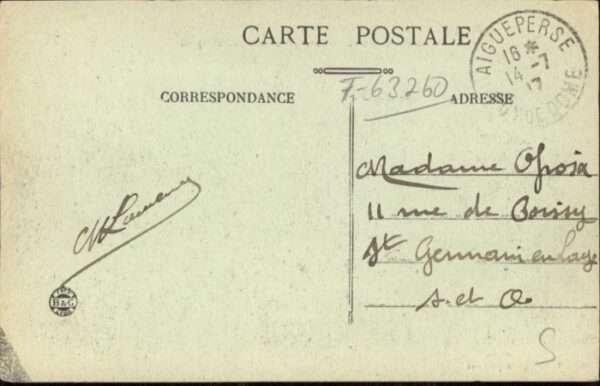 CARTE POSTALE
AIGUEPERSE
16 *
14 -7
17
PUY DE DOME
F-63260
CORRESPONDANCE
ADRESSE
Madame
11 rue de Poissy
St Germain en Laye
S. et O.
B&G
S